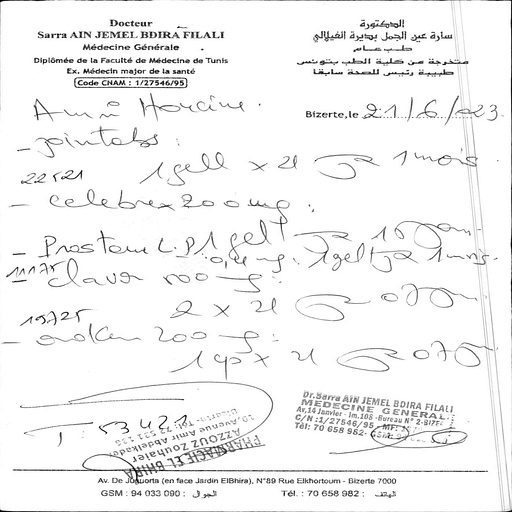 Docteur
Sarra AIN JEMEL BDIRA FILALI
Médecine Générale
Diplômée de la Faculté de Médecine de Tunis
Ex. Médecin major de la santé
Code CNAM : 1/27546/95
الدكتورة
سارة عين الجمل بديرة الفيلالي
طب عام
متخرجة من كلية الطب بتونس
طبيبة رئيس للصحة سابقا
Bizerte,le 21/6/023
1gell x 2/j 1 mois
22521
- Celebrex 200mg :
1gel 
- Prostam L.P 0,4mg : 1gel 1 mois
11175
500mg
2 x 2/j 07j
19725
200mg :
1cp x 2/j 07j
T : 53421
PHARMACIE EL BHIRA
AZZOUZ Zouhaier
19, Avenue Amir Abdelkader
Dr.Sarra AIN JEMEL BDIRA FILALI
MEDECINE GENERALE
Av.14 Janvier - Im.108 -Bureau N° 2-BIZERTE
C/N :1/27546/95
Tél: 70 658 982
Av. De Juguorta (en face Jardin ElBhira), N°89 Rue Elkhortoum - Bizerte 7000
GSM : 94 033 090 : الجوال Tél. : 70 658 982 : الهاتف